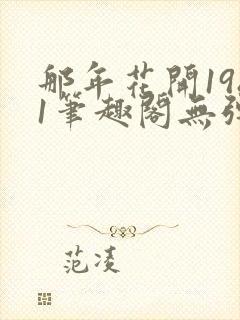 那年花開198
1筆趣閣無彈
范凌